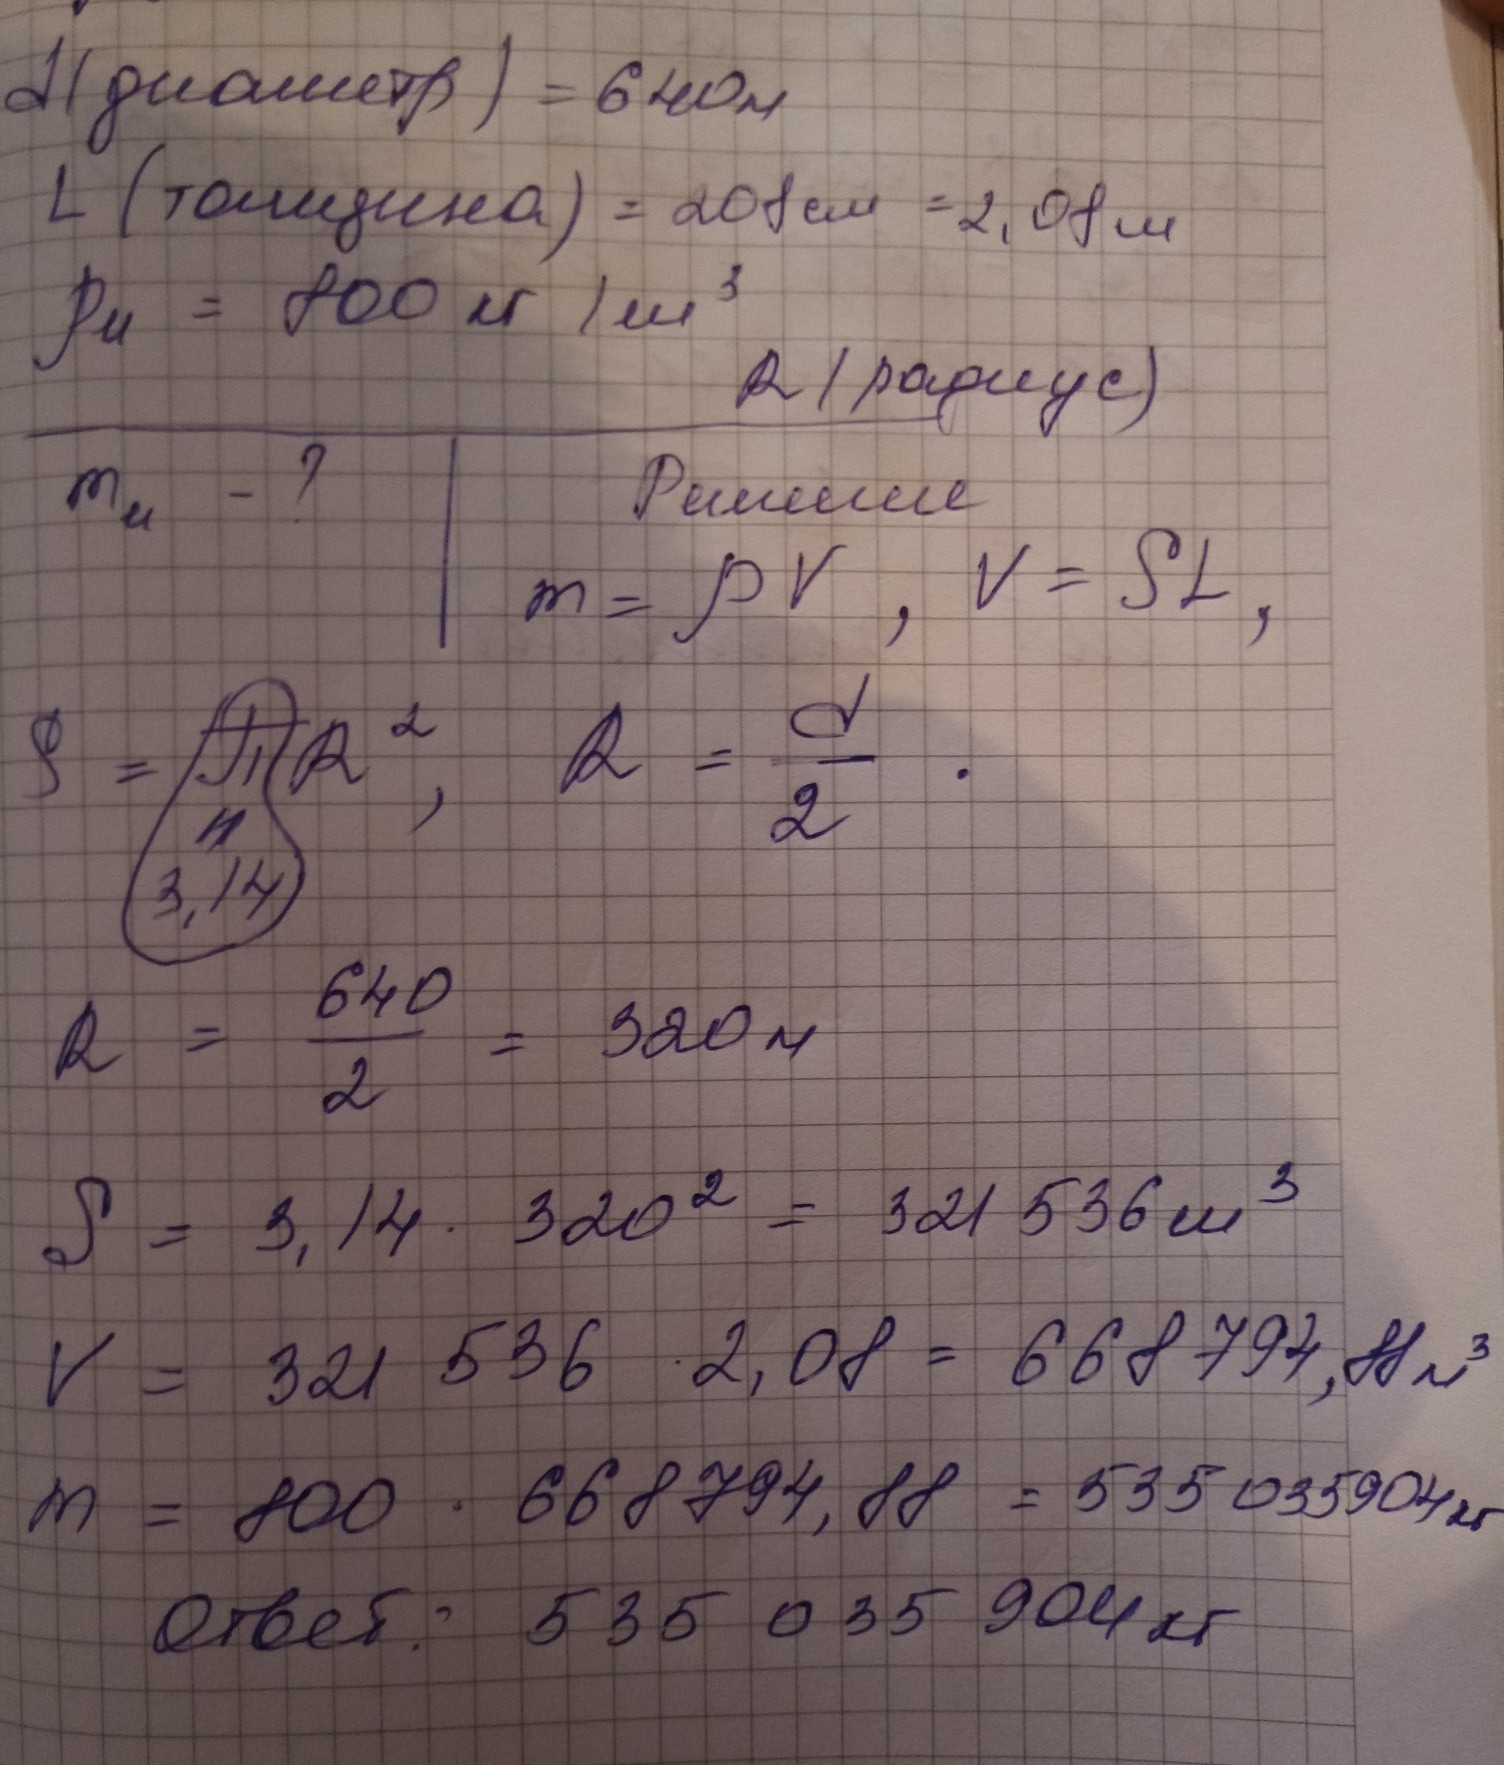 d (диаметр) = 640м
L (толщина) = 208см = 2,08м
ρн = 800 кг /м³
R (радиус)
mн - ?
Решение
m = ρV , V = SL,
S = πR², R = d/2 .
"
3,14
R = 640/2 = 320м
S = 3,14 · 320² = 321 536 м³
V = 321 536 · 2,08 = 668 794, 88м³
m = 800 · 668 794, 88 = 535 035904кг
Ответ: 535 035 904 кг